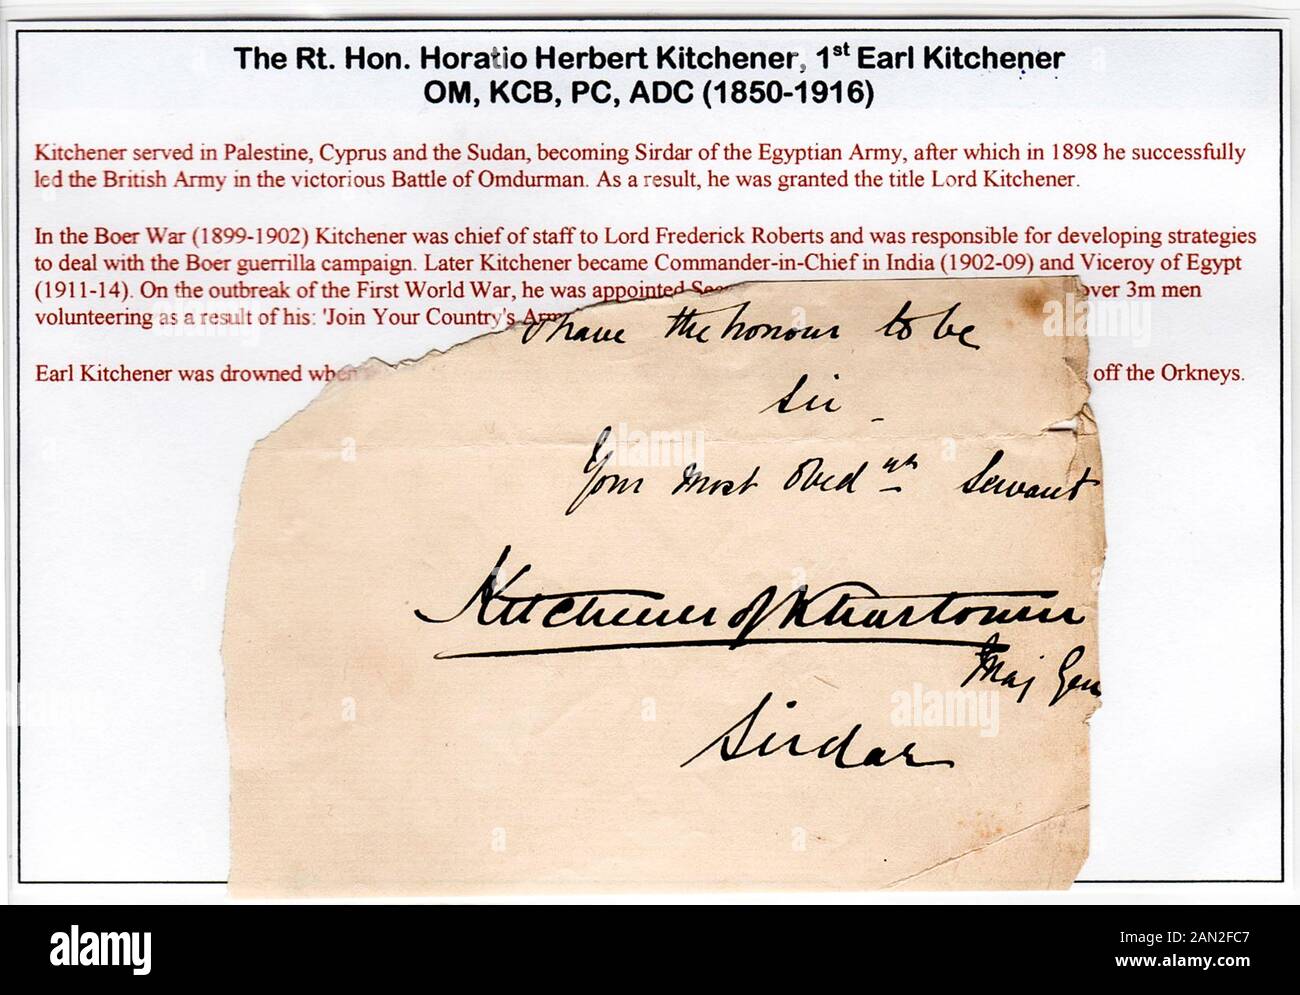 The Rt. Hon. Horatio Herbert Kitchener, 1st Earl Kitchener
OM, KCB, PC, ADC (1850-1916)
Kitchener served in Palestine, Cyprus and the Sudan, becoming Sirdar of the Egyptian Army, after which in 1898 he successfully
led the British Army in the victorious Battle of Omdurman. As a result, he was granted the title Lord Kitchener.
In the Boer War (1899-1902) Kitchener was chief of staff to Lord Frederick Roberts and was responsible for developing strategies
to deal with the Boer guerrilla campaign. Later Kitchener became Commander-in-Chief in India (1902-09) and Viceroy of Egypt
(1911-14). On the outbreak of the First World War, he was appointed over 3m men
volunteering as a result of his: 'Join Your Country's
Earl Kitchener was drowned off the Orkneys.
I have the honour to be
Sir
Your most Obed nt Servant
Kitchener of Khartoum
Maj Gen
Sirdar
alamy
Image ID: 2AN2FC7
www.alamy.com